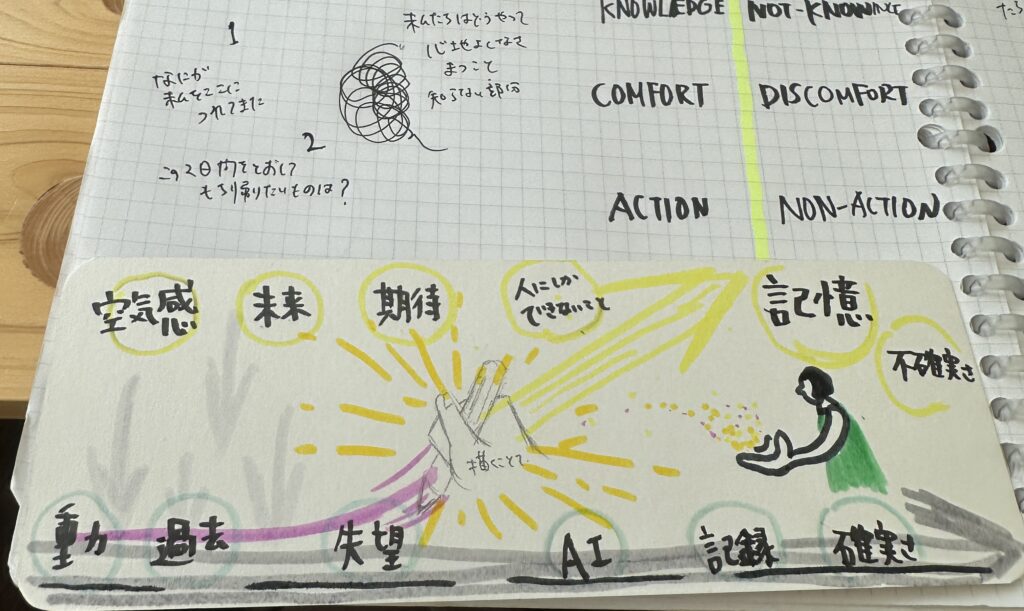 1
なにが
私をここに
つれてきた
2
この2日間をとおして
もち帰りたいものは?
私たちはどうやって
心地よくなさ
まつこと
知らない部分
KNOWLEDGE
NOT-KNOWING
COMFORT
DISCOMFORT
ACTION
NON-ACTION
空気感
未来
期待
人にしか
できないこと
記憶
不確実さ
描くことで
動力
過去
失望
AI
記録
確実さ